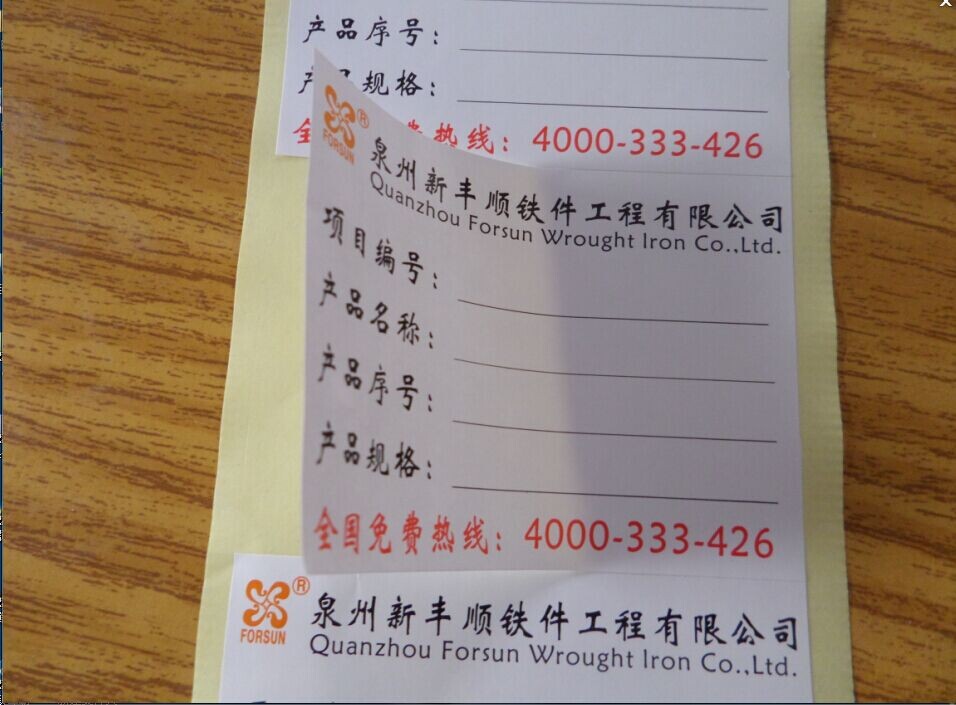 产品序号：
产品规格：
全 费热线：4000-333-426
FORSUN ®
泉州新丰顺铁件工程有限公司
Quanzhou Forsun Wrought Iron Co.,Ltd.
项目编号：
产品名称：
产品序号：
产品规格：
全国免费热线：4000-333-426
FORSUN ®
泉州新丰顺铁件工程有限公司
Quanzhou Forsun Wrought Iron Co.,Ltd.